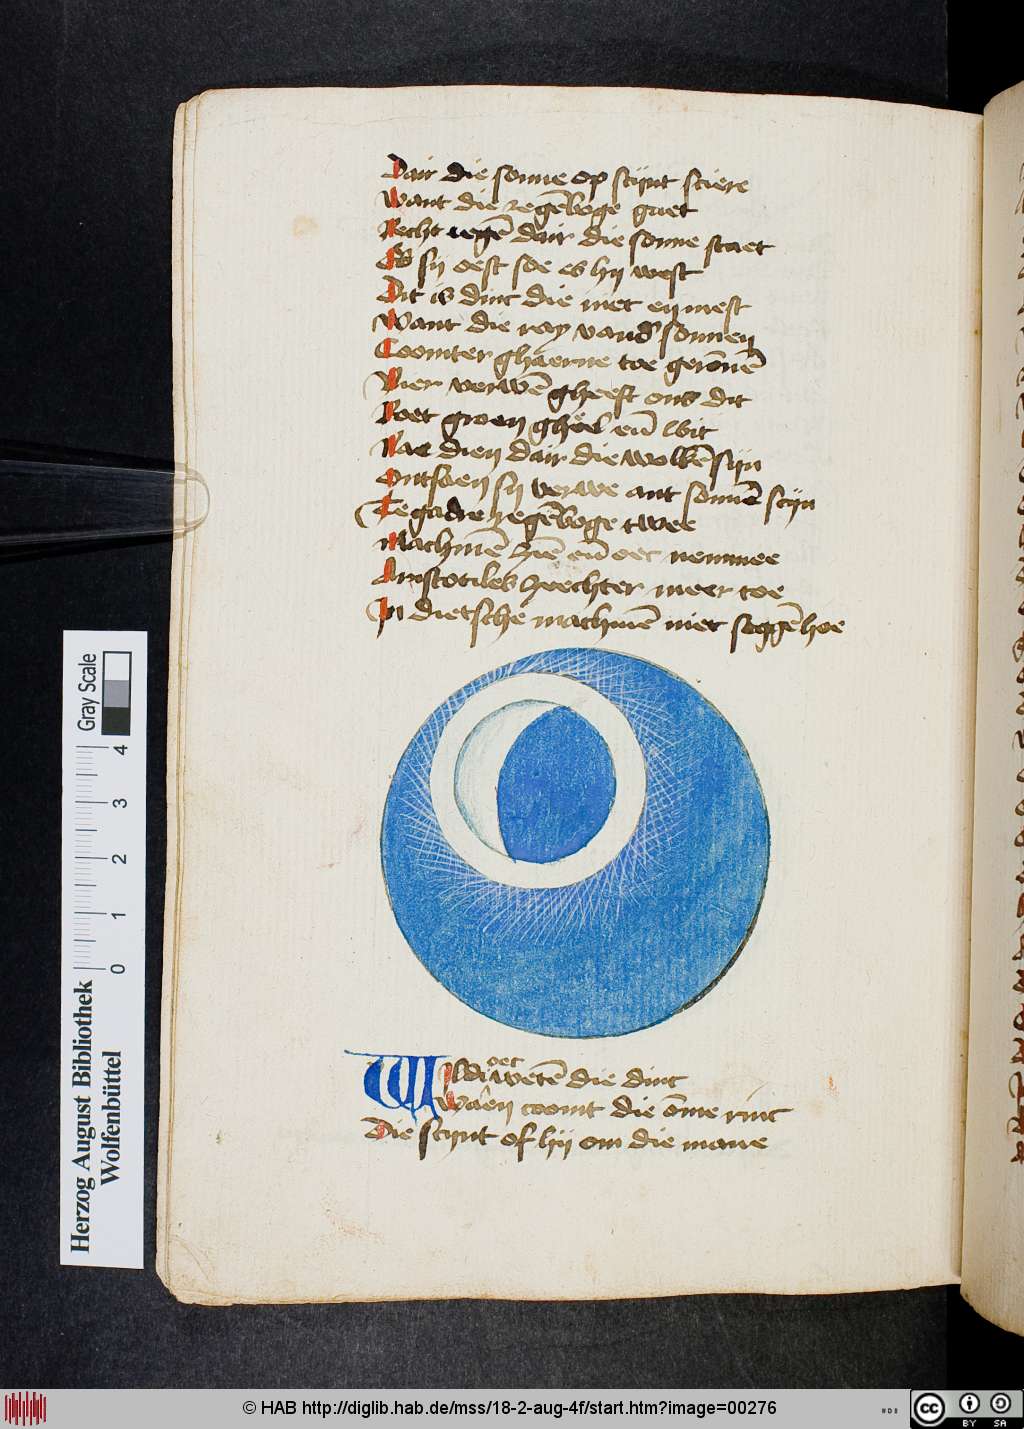 Dair die sonne op scijnt sciere
Want die regēboge gaet
Recht iegē dair die sonne staet
Es sij oest soe es hij west
Dit is dinc die niet en mest
Want die ray vand sonnen
Coomter ghaerne toe gerōnē
Vier verwē gheeft ons dit
Roet groen gheel eñ wit
Nae dien dair die wolkē sijn
Ontfaen sij verwe ant sonnē scijn
Te gadre regēboge twee
Machmē ziē eñ oec nemmee
Aristotiles zeechter meer toe
In dietsche machmē niet seggē hoe
Wildi oec wetē die dinc
Waen coomt die ōme rinc
Die scijnt of hij om die mane
Herzog August Bibliothek
Wolfenbüttel
Gray Scale
0 1 2 3 4
© HAB http://diglib.hab.de/mss/18-2-aug-4f/start.htm?image=00276
cc
BY SA